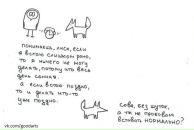 понимаешь, лиса, если
я встаю слишком рано,
то я ничего не могу
делать, потому что весь
день сонная.
а если встаю поздно,
то и делать что-то
уже поздно.
сова, без шуток,
а ты не пробовала
вставать нормально?
vk.com/goodarts